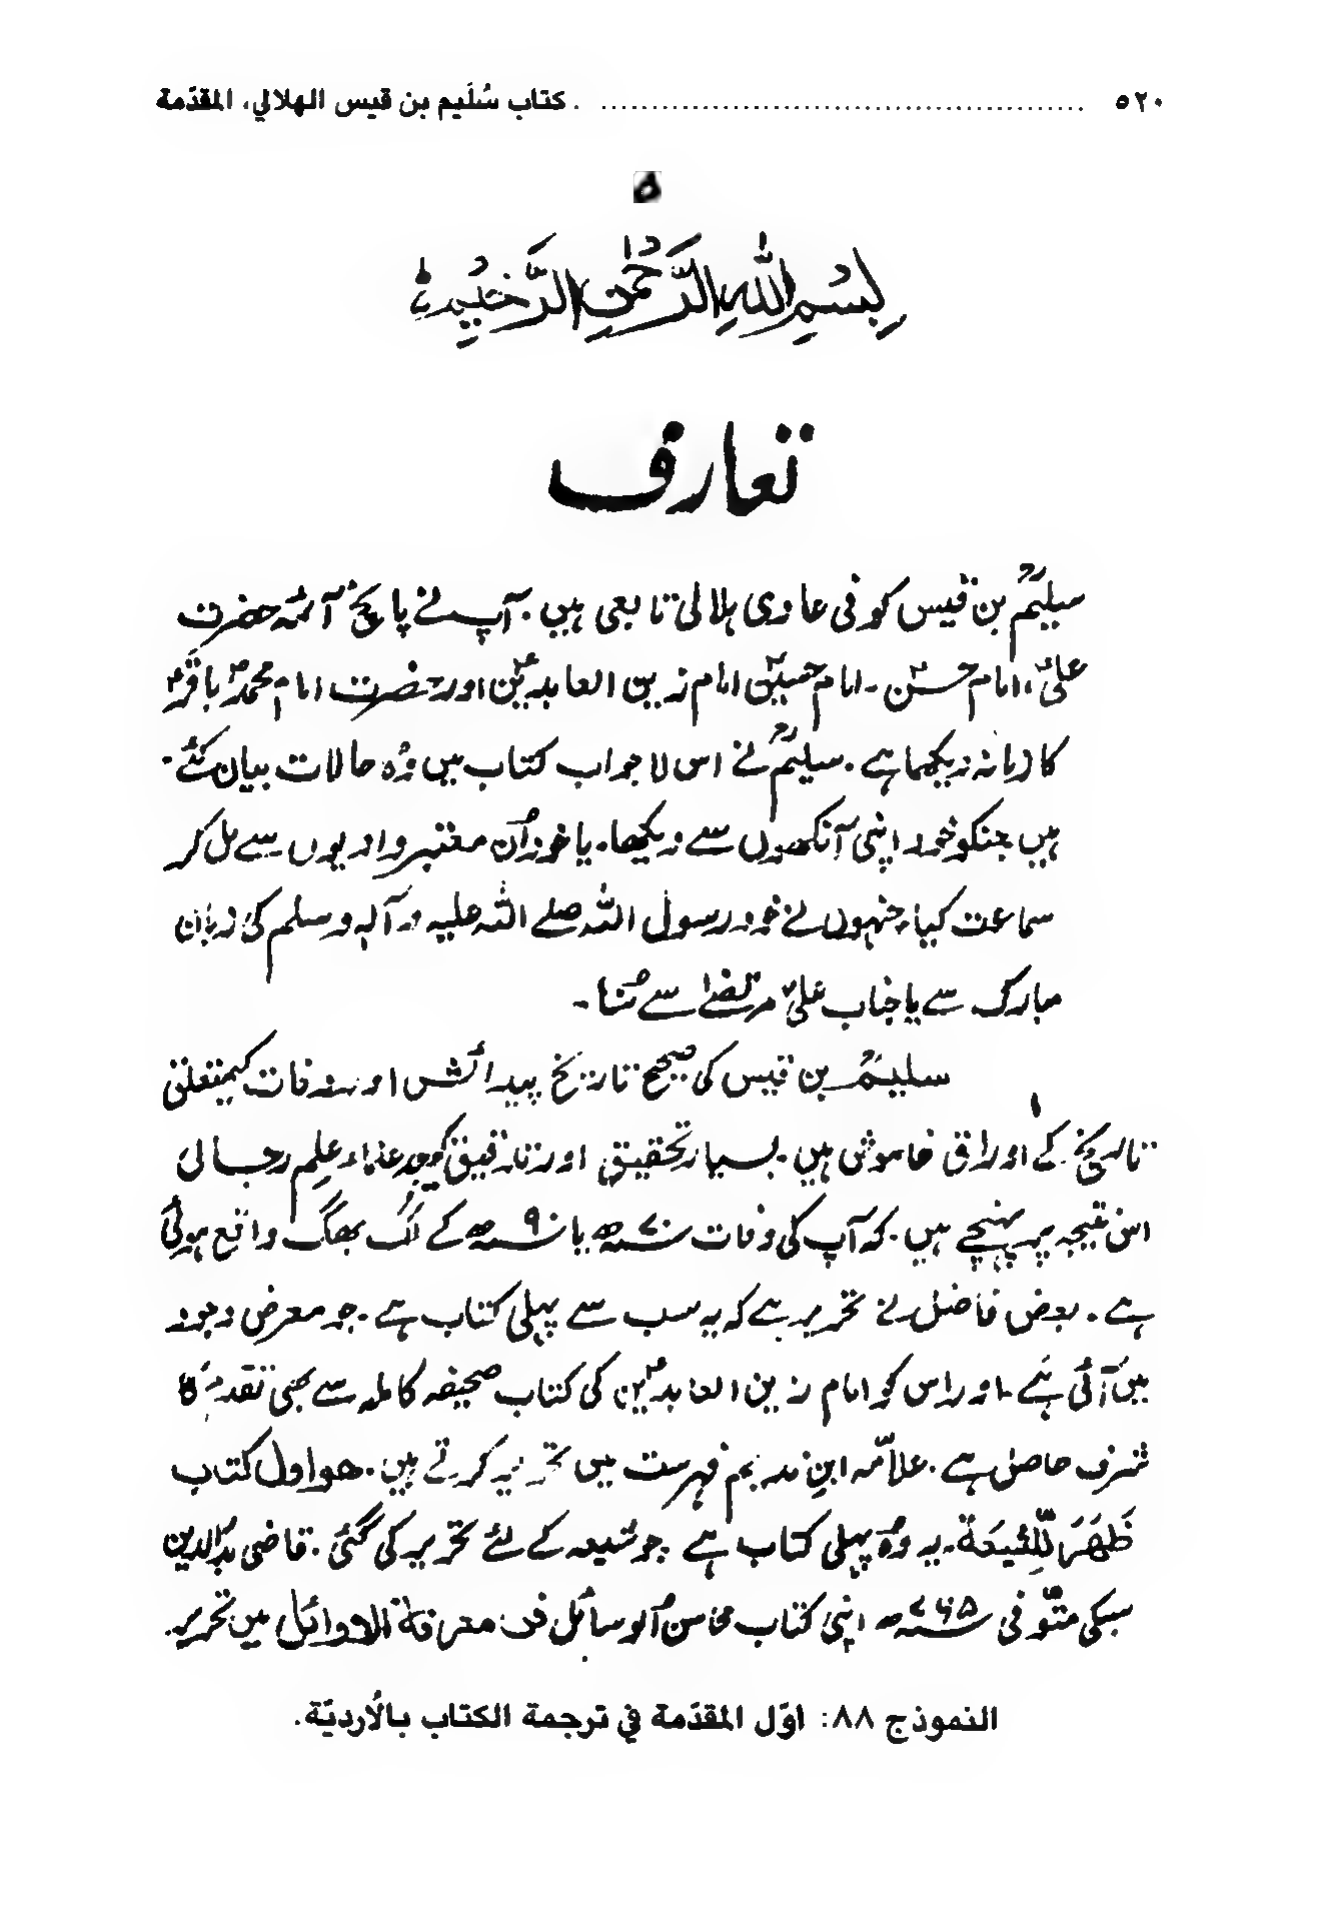 ٥٢٠ ................................................ كتاب سُلَيم بن قيس الهلالي، المقدّمة
۵
بِسْمِ اللّٰهِ الرَّحْمٰنِ الرَّحِيْمِ
تعارف
سیلیمؒ بن قیس کوفی عاوی ہلالی تابعی ہیں۔ آپ نے پانچ آئمہ حضرت
علیؑ، امام حسنؑ۔ امام حسینؑ امام زین العابدینؑ اور حضرت امام محمد باقرؑ
کا زمانہ دیکھا ہے۔ سیلیمؒ نے اس لاجواب کتاب میں وُہ حالات بیان کئے۔
ہیں جنکو خود اپنی آنکھوں سے دیکھا۔ یا خود اُن معتبر وادیوں سے مل کر
سماعت کیا۔ جنہوں نے خود رسول اللہ صلے اللہ علیہ و آلہ وسلم کی زبان
مبارک سے یا جناب علیؑ مرتضےٰ سے سُنا۔
سلیمؒ بن قیس کی صحیح تاریخ پیدائش اور وفات کیمتعلق
تاریخ کے اوراق خاموش ہیں۔ بسیار تحقیق اور تدقیق کے بعد علماء علم رجال
اس نتیجہ پر پہنچے ہیں۔ کہ آپ کی وفات ۷۰ھ یا ۹۰ھ کے لگ بھگ واقع ہوئی
ہے۔ بعض فاضل نے تحریر ہے کہ یہ سب سے پہلی کتاب ہے۔ جو معرض وجود
میں آئی ہے۔ اور اس کو امام زین العابدینؑ کی کتاب صحیفہ کاملہ سے بھی تقدم کا
شرف حاصل ہے۔ علاّمہ ابنِ ندیم فہرست میں تحریر کرتے ہیں۔ هو اول كتاب
ظَهَرَ لِلشِّيعَةُ۔ یہ وُہ پہلی کتاب ہے۔ جو شیعہ کے لئے تحریر کی گئی۔ قاضی بدرالدین
سبکی متوّفی ۷۶۵ھ اپنی کتاب محاسن الوسائل فی معرفة الاوائل میں تحریر
النموذج ٨٨: أوّل المقدّمة في ترجمة الكتاب بالأُرديّة.